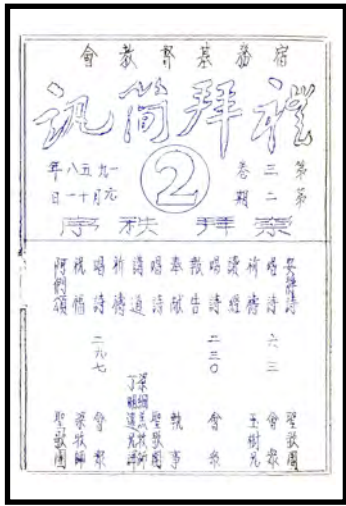 宿務基督教會
禮拜簡訊
第三卷
第二期
2
一九五八年
崇拜秩序
安靜詩 聖歌團
唱詩 六三 會眾
祈禱
讀經
唱詩 二三〇 會眾
報告
奉獻 執事
唱詩 聖歌團
講道
祈禱
唱詩 二九七 會眾
祝福 梁牧師
阿們頌 聖歌團